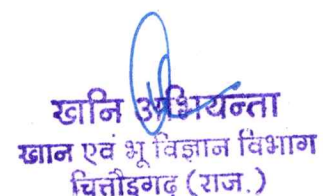 खनि अभियन्ता
खान एवं भू विज्ञान विभाग
चित्तौड़गढ़ (राज.)